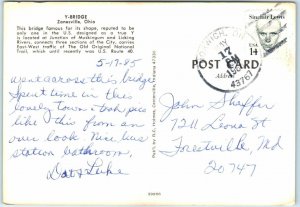 Y-BRIDGE
Zanesville, Ohio
This bridge famous for its shape, reputed to be
only one in the U.S. designed as a true Y
is located at Junction of Muskingum and Licking
Rivers, connects three sections of the City, conveys
East-West traffic of The Old Original National
Trail, which until recently was U.S. Route 40.
5-17-85
went across this bridge
Spent time in this
lovely town & took pics
like this from an
over look. Nice bus
station bathroom,
Dot & Luke
Sinclair Lewis
14
17
43767
POST CARD
Address
John Shaffer
7211 Leona St
Forestville, Md
20747